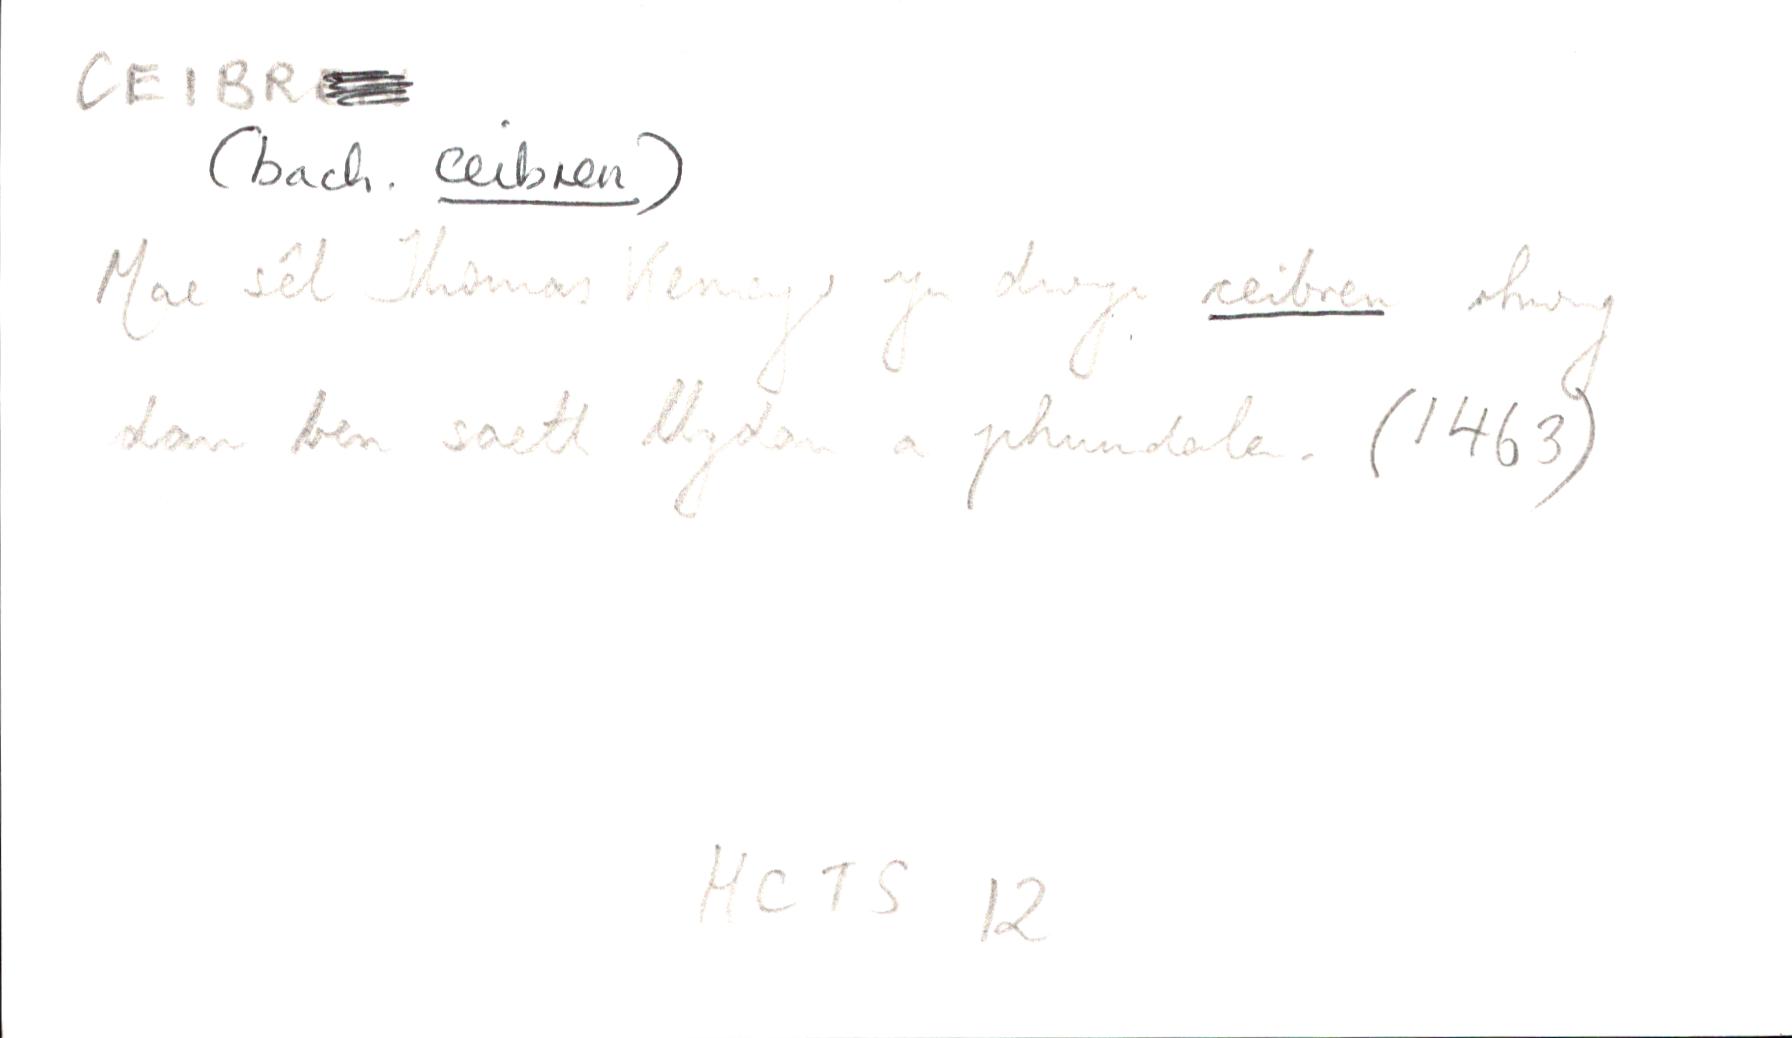 CEIBR
(bach. ceibren)
Mae sêl Thomas Kemeys yn dwyn ceibren rhwng
dau ben saeth llydan a phundale. (1463)
HCTS 12